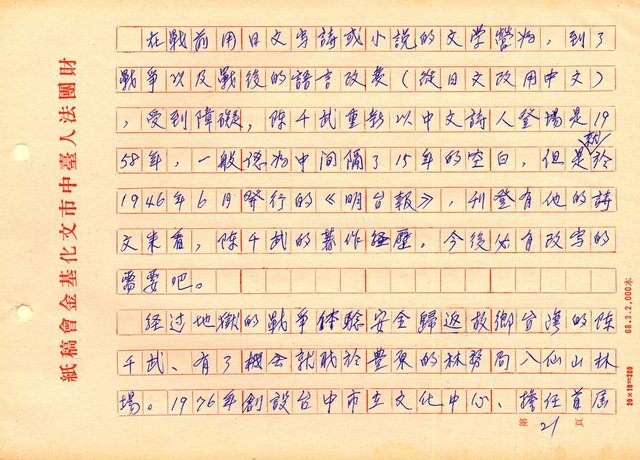 在戰前用日文写詩或小說的文学營為，到了
戰争以及戰後的語言改変（從日文改用中文）
，受到障礙，陳千武重新以中文詩人登場是19
58年，一般認為中間隔了15年的空白，但是於
1946年6月發行的《明台報》，刊登有他的詩
文来看，陳千武的著作經歷，今後必有改写的
需要吧。
經过地獄的戰争体驗安全歸返故鄉台湾的陳
千武、有了機会就職於豊東的林努局八仙山林
場。1976年創設台中市立文化中心、擔任首屆
第21頁
財團法人臺中市文化基金會稿紙
68.3.2,000本
20×10=200